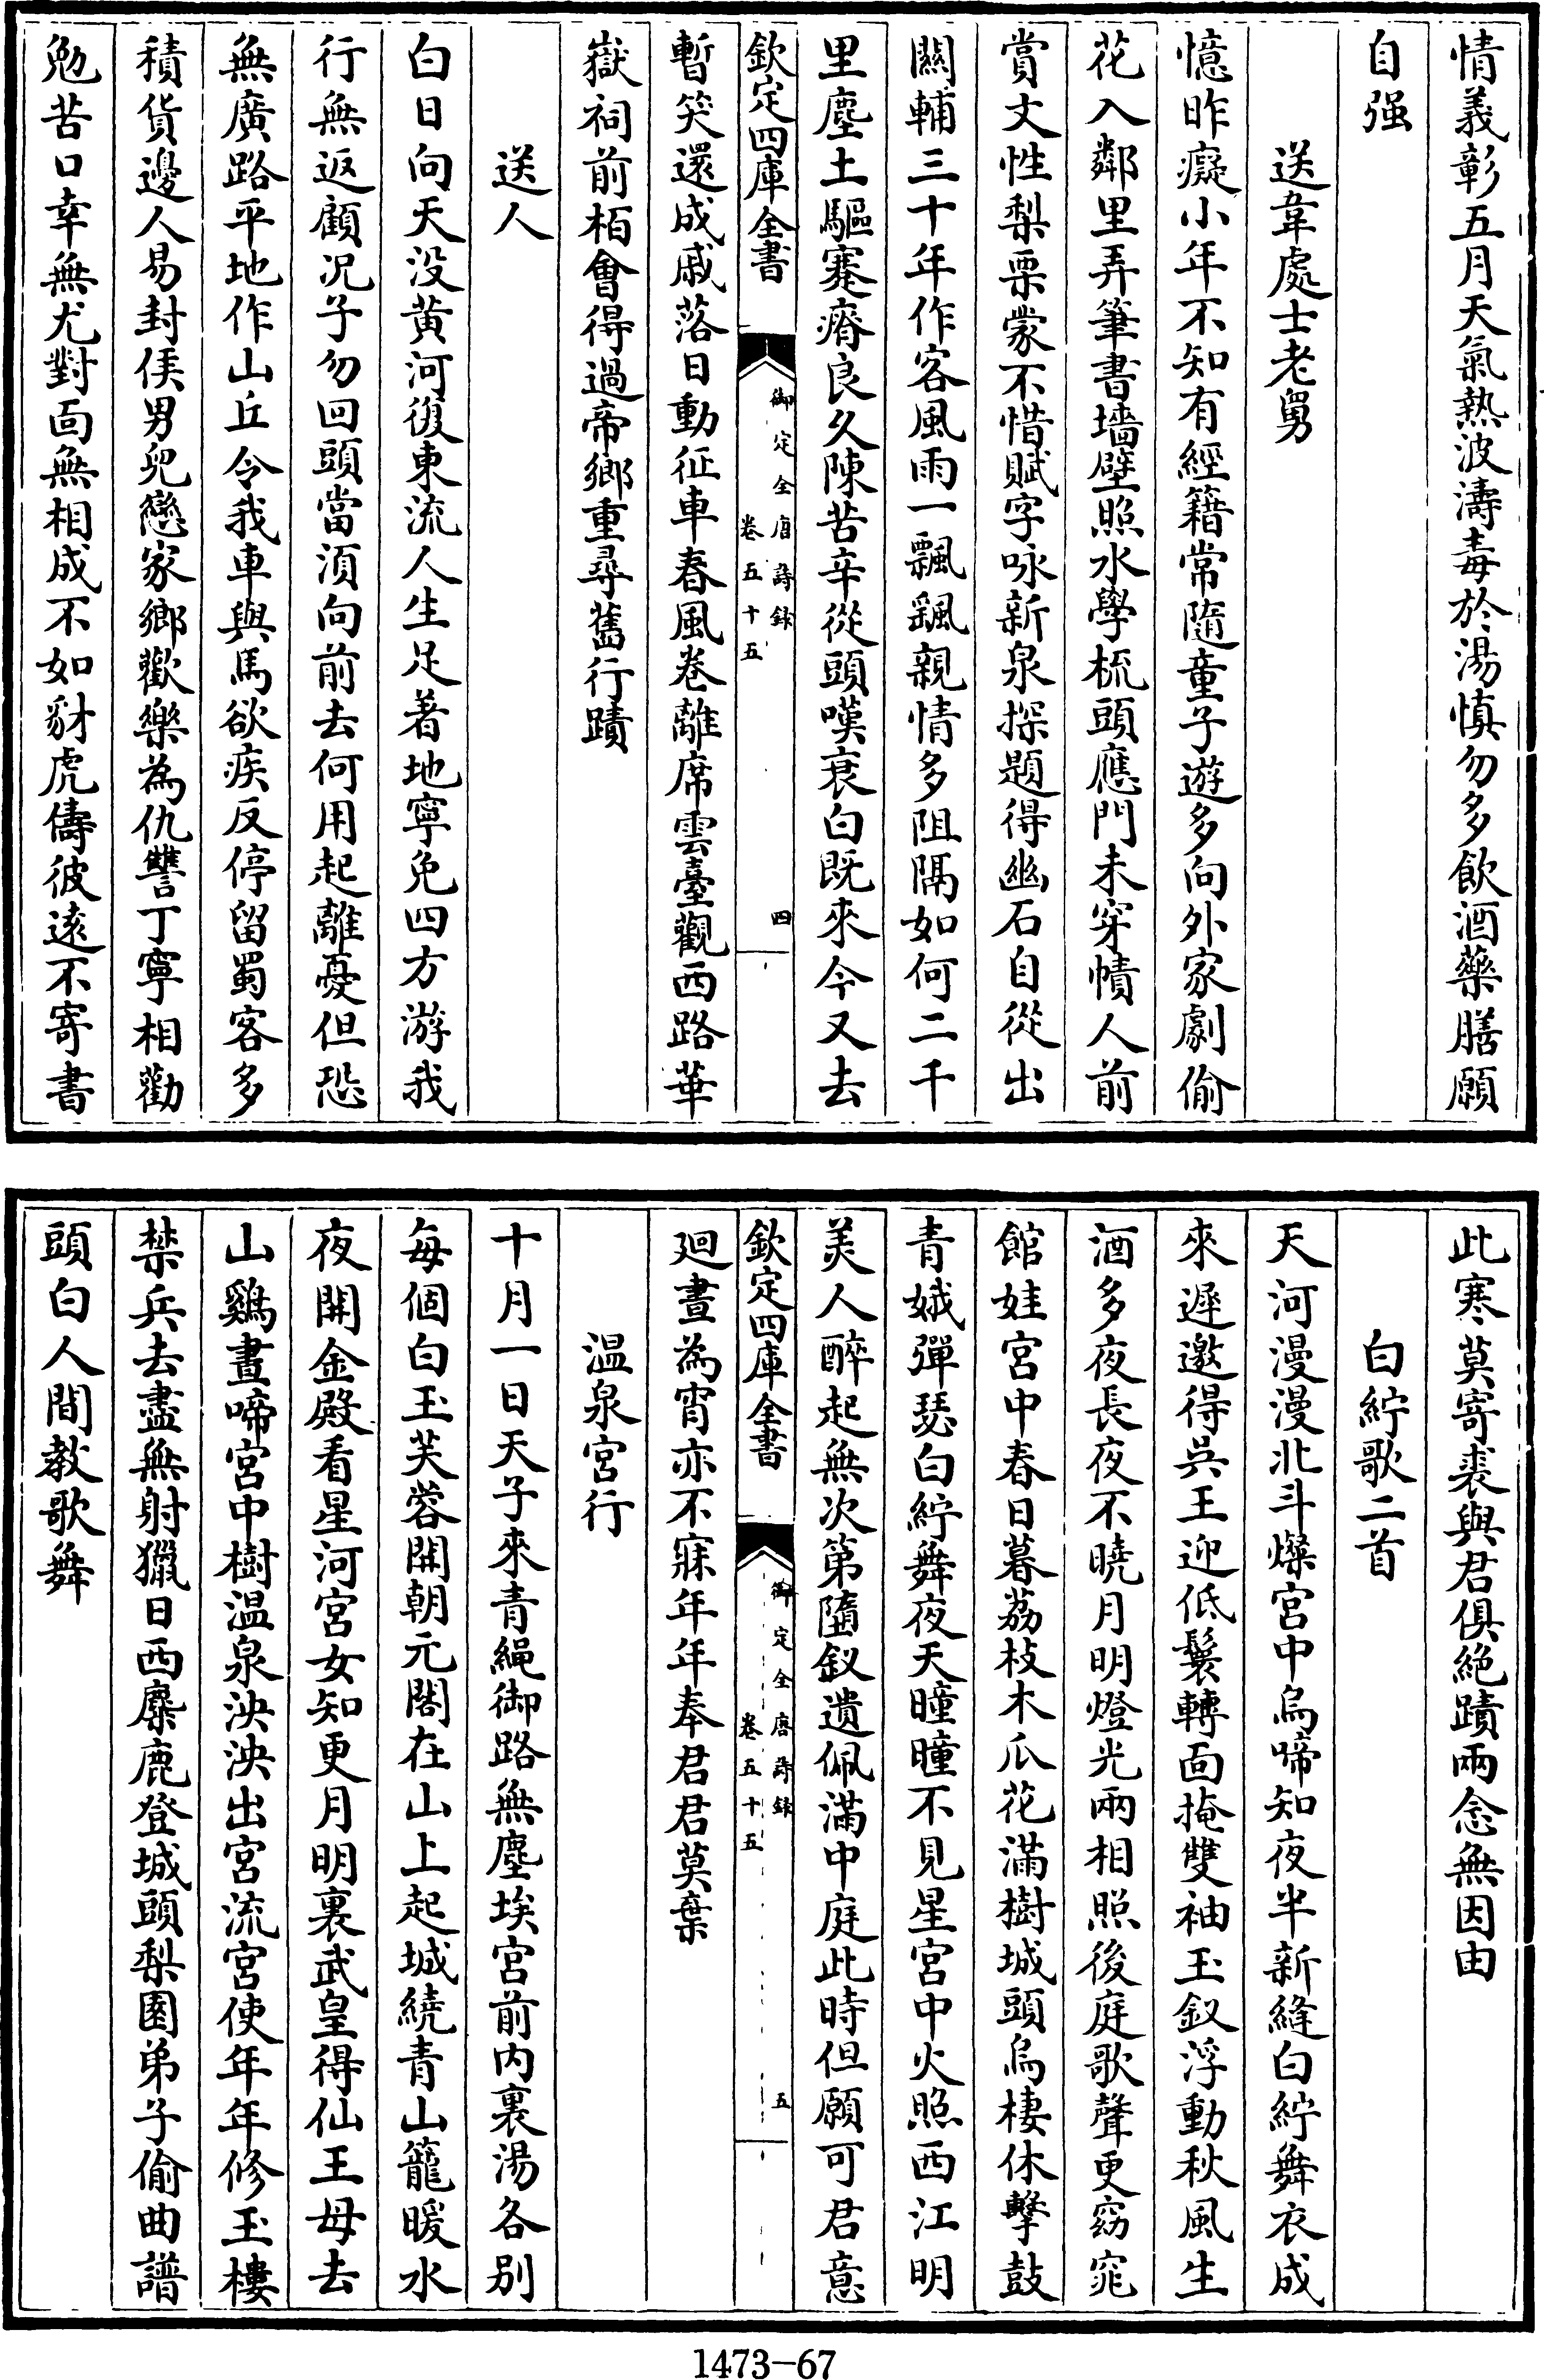 情義彰五月天氣熱波濤毒於湯慎勿多飲酒藥膳願
自强
送韋處士老舅
憶昨癡小年不知有經籍常隨童子遊多向外家劇偷
花入鄰里弄筆書墻壁照水學梳頭應門未穿幘人前
賞文性梨栗蒙不惜賦字咏新泉探題得幽石自從出
關輔三十年作客風雨一飄颻親情多阻隔如何二千
里塵土驅蹇瘠良久陳苦辛從頭嘆衰白既來今又去
欽定四庫全書
御定全唐詩錄
卷五十五
四
暫笑還成戚落日動征車春風卷離席雲臺觀西路華
嶽祠前栢會得過帝鄉重尋舊行蹟
送人
白日向天没黄河復東流人生足著地寧免四方游我
行無返顧况子勿回頭當須向前去何用起離憂但恐
無廣路平地作山丘令我車與馬欲疾反停留蜀客多
積貨邊人易封侯男兒戀家鄉歡樂為仇讐丁寧相勸
勉苦口幸無尤對面無相成不如豺虎儔彼遠不寄書
此寒莫寄裘與君俱絶蹟兩念無因由
白紵歌二首
天河漫漫北斗燦宮中烏啼知夜半新縫白紵舞衣成
來遲邀得吳王迎低鬟轉面掩雙袖玉釵浮動秋風生
酒多夜長夜不曉月明燈光兩相照後庭歌聲更窈窕
館娃宮中春日暮荔枝木瓜花滿樹城頭烏棲休擊鼓
青娥彈瑟白紵舞夜天曈曈不見星宮中火照西江明
美人醉起無次第墮釵遺佩滿中庭此時但願可君意
欽定四庫全書
御定全唐詩錄
卷五十五
五
廻晝為宵亦不寐年年奉君君莫棄
温泉宮行
十月一日天子來青繩御路無塵埃宮前内裏湯各别
每個白玉芙蓉開朝元閣在山上起城繞青山龍暖水
夜開金殿看星河宮女知更月明裏武皇得仙王母去
山鷄晝啼宮中樹温泉泱泱出宮流宮使年年修玉樓
禁兵去盡無射獵日西麋鹿登城頭梨園弟子偷曲譜
頭白人間教歌舞
1473-67